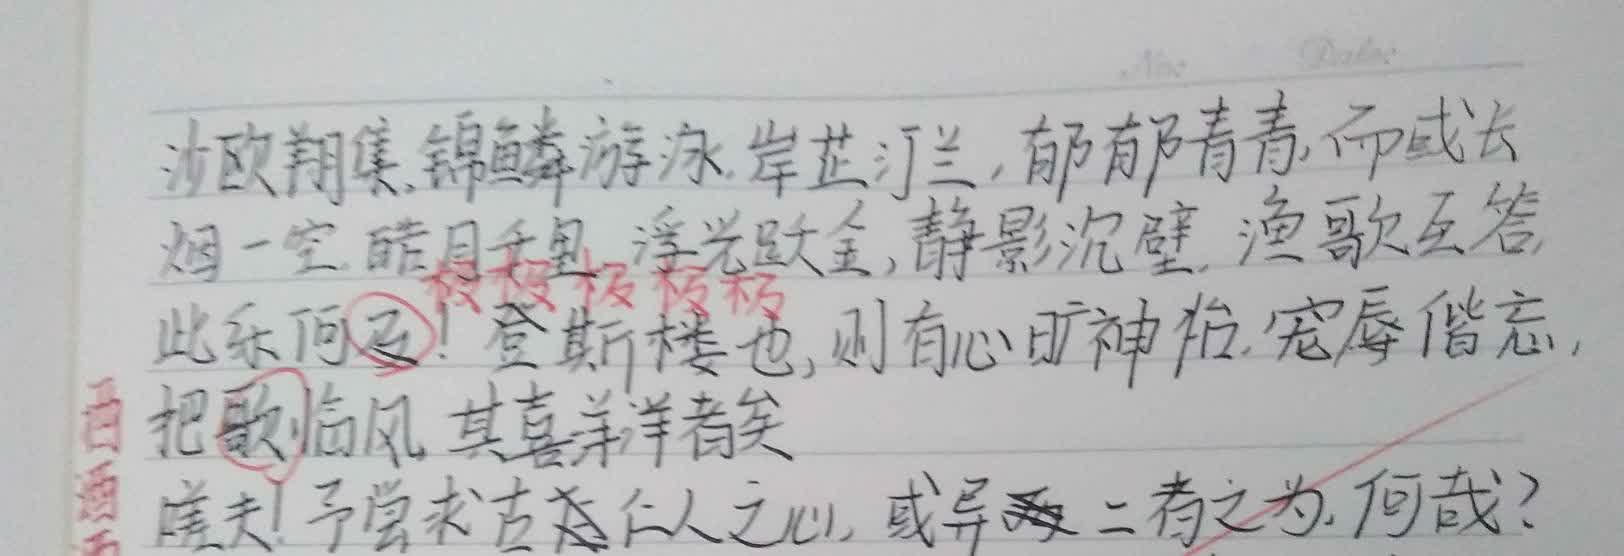 No: Date:
沙欧翔集,锦鳞游泳.岸芷汀兰,郁郁青青,而或长
烟一空.皓月千里,浮光跃金,静影沉壁.渔歌互答,
极极极极极
此乐何!登斯楼也,则有心旷神怡.宠辱偕忘,
把歌临风,其喜洋洋者矣
酒
嗟夫!予尝求古仁人之心,或异二者之为,何哉?
酒